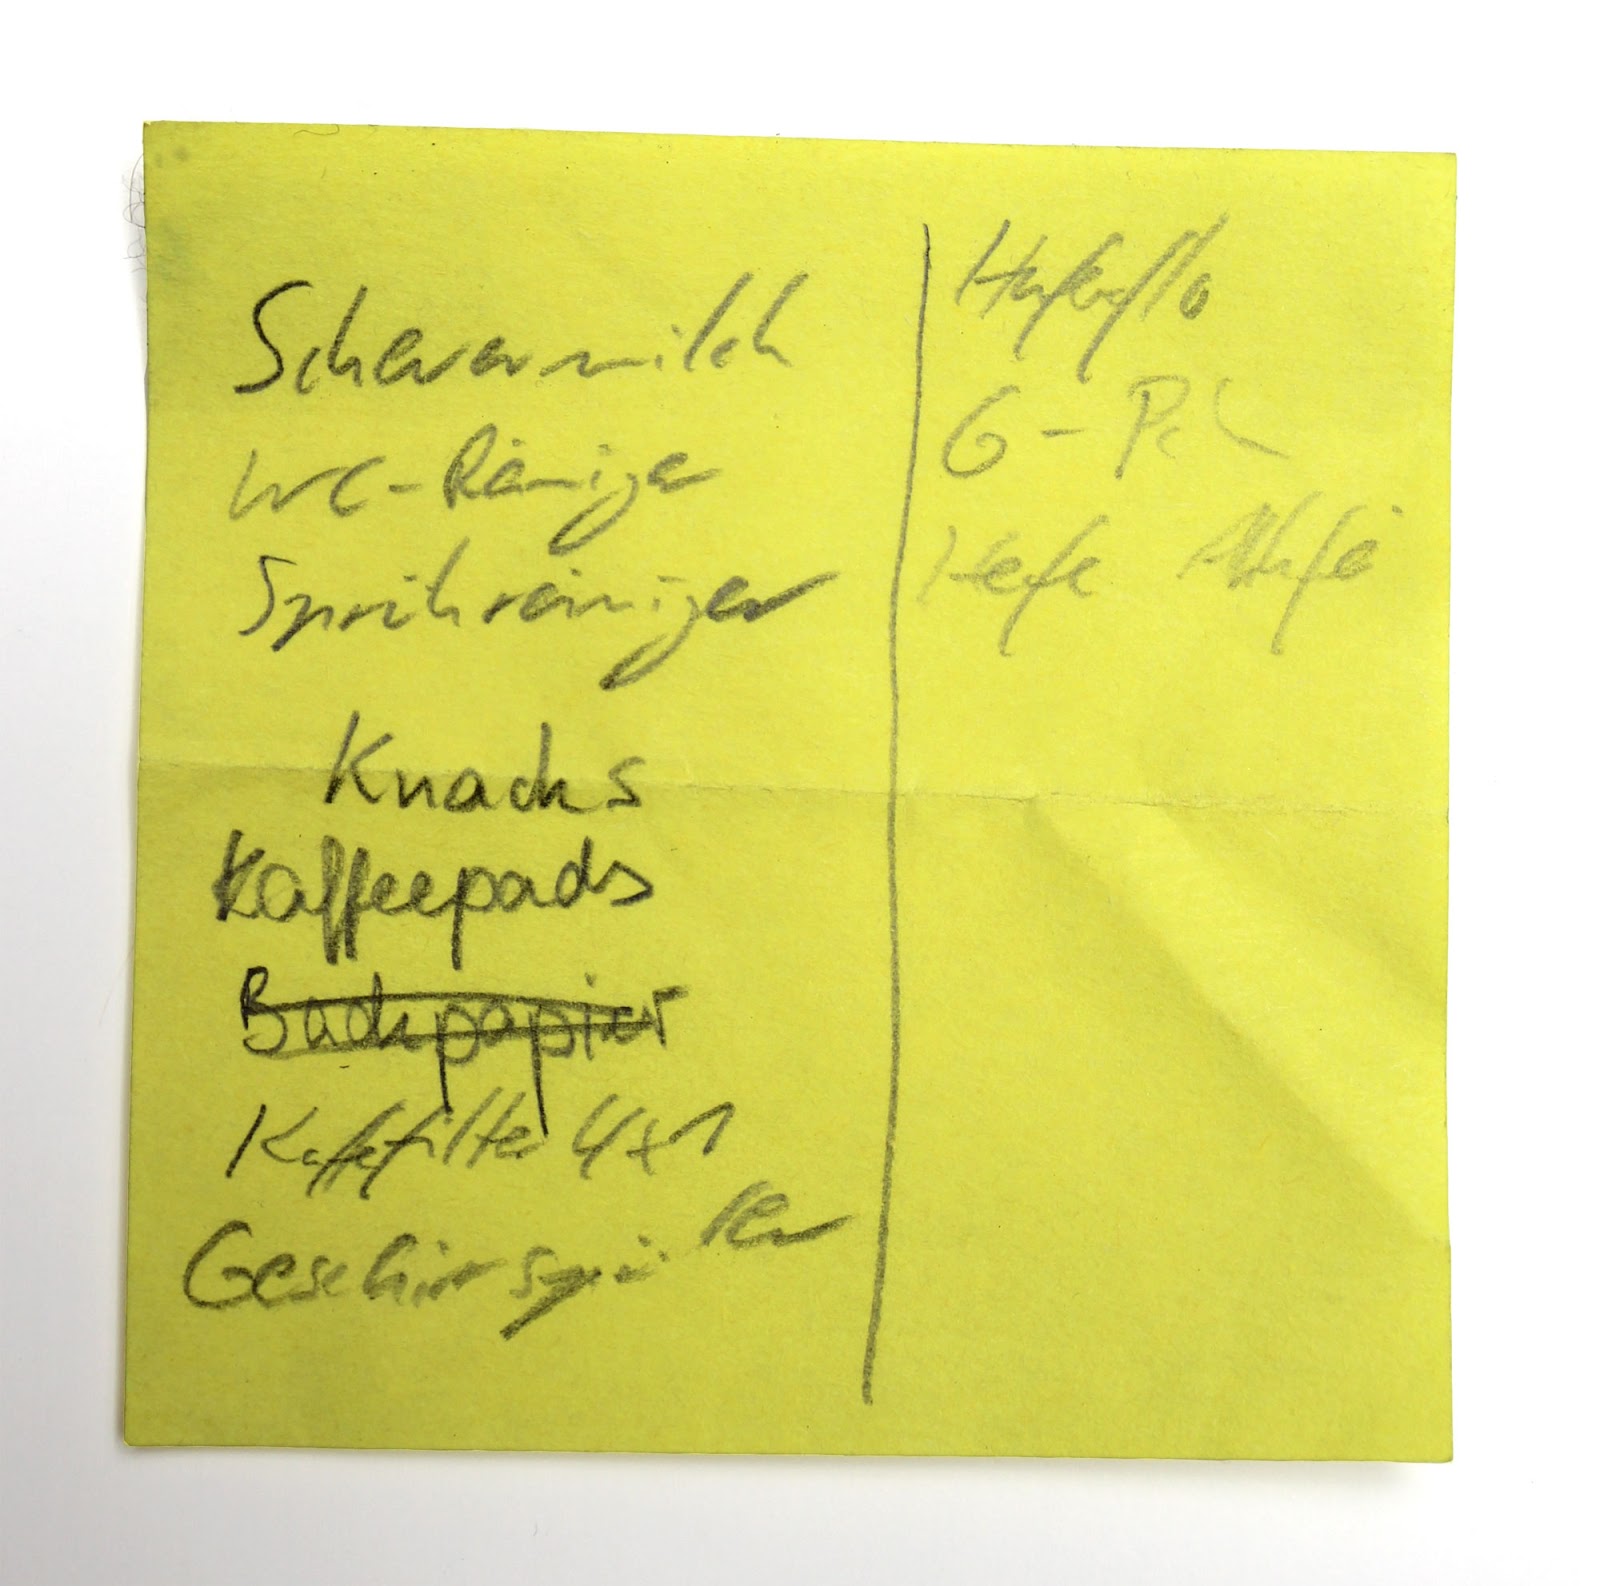 Scheuermilch
WC-Reiniger
Sprühreiniger
Knacks
Kaffeepads
Backpapier
Kaffefilter 4x1
Geschirrspüller
G-
Hefe